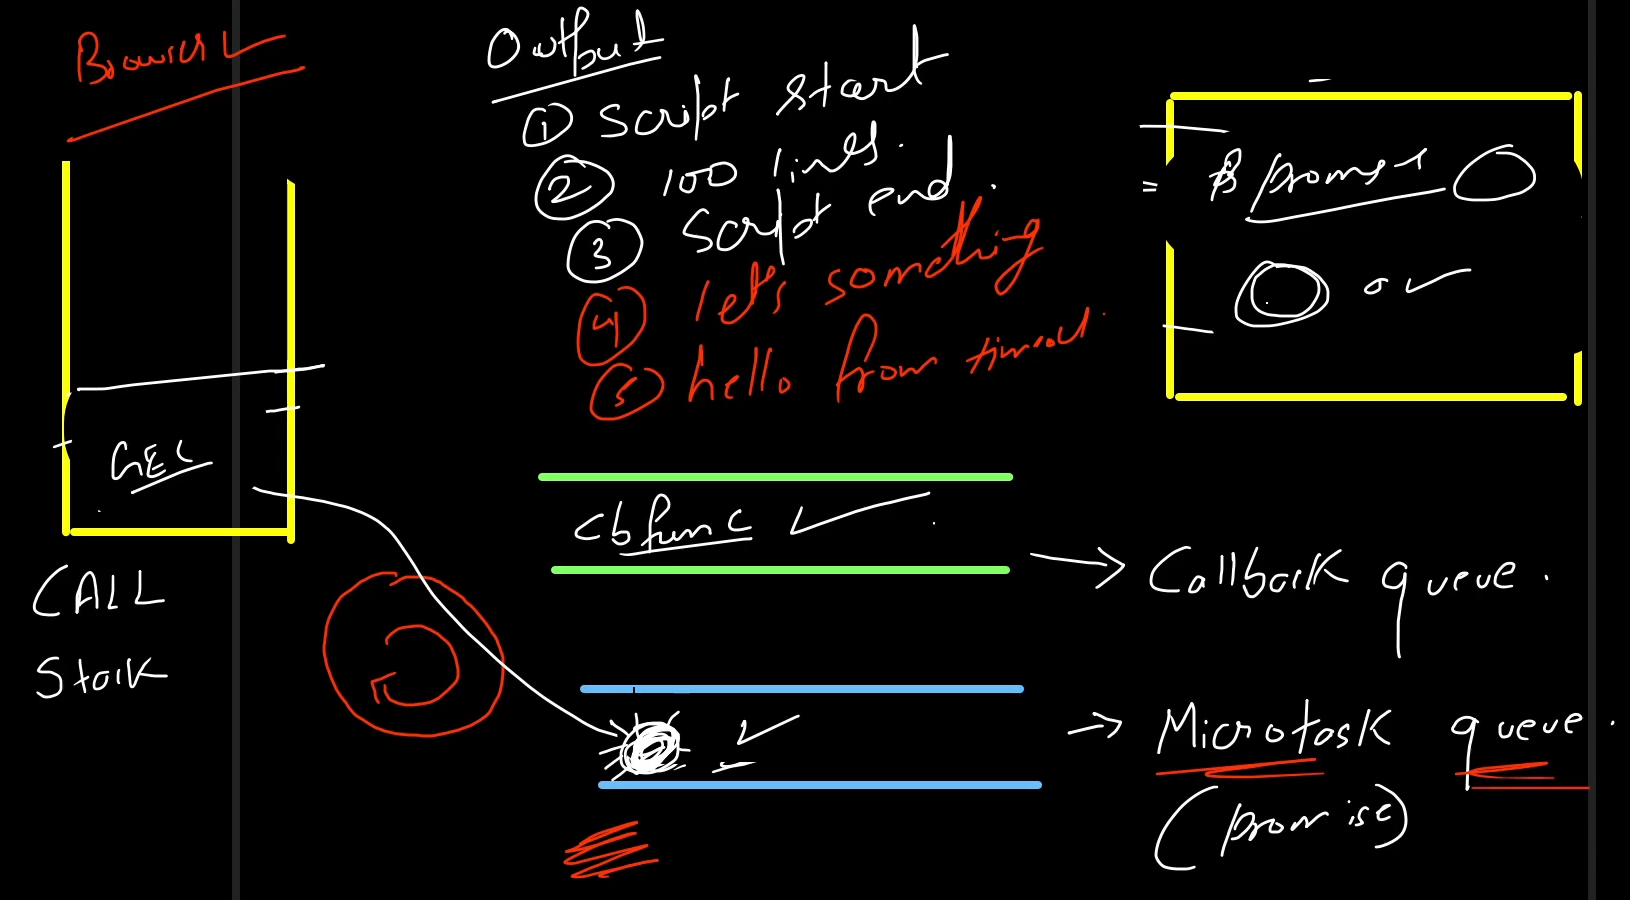 Browser
Output
① Script start
② 100 lines.
③ Script end.
④ let's something
⑤ hello from timeout.
promise
GEC
cb func
Callback queue.
CALL
Stack
Microtask queue.
(promise)